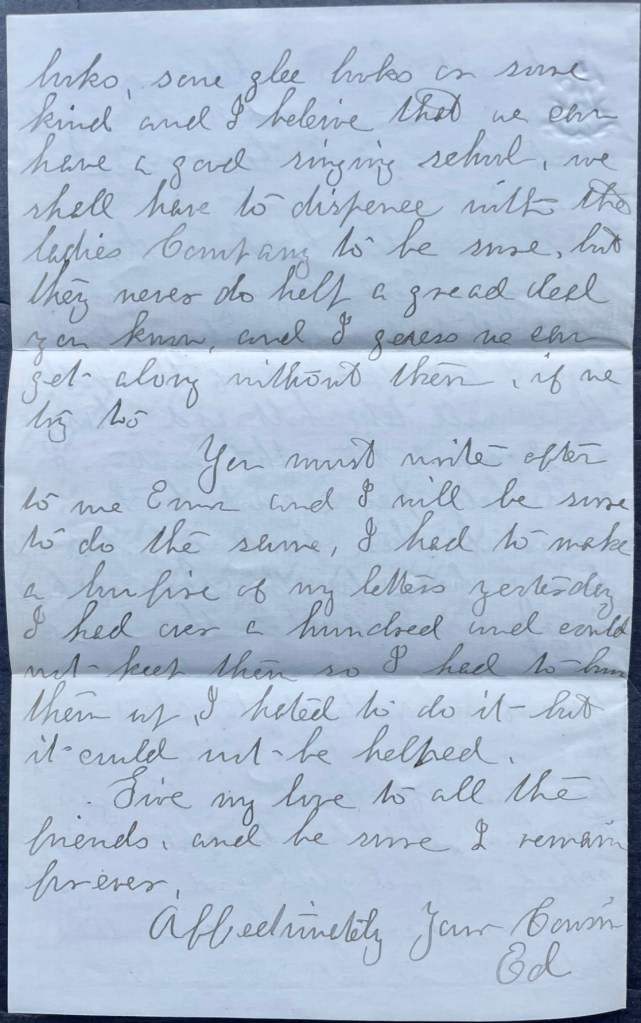 books, some glee books or some
kind and I beleive that we can
have a good singing school, we
shall have to dispence with the
ladies Company to be sure, but
they never do help a gread deal
you know, and I guess we can
get along without them, if we
try to
You must write often
to me Emma and I will be sure
to do the same, I had to make
a bonfire of my letters yesterday
I had over a hundred and could
not keep them so I had to burn
them up, I hated to do it but
it could not be helped.
Give my love to all the
friends, and be sure I remain
forever,
Affectionately Your Cousin
Ed